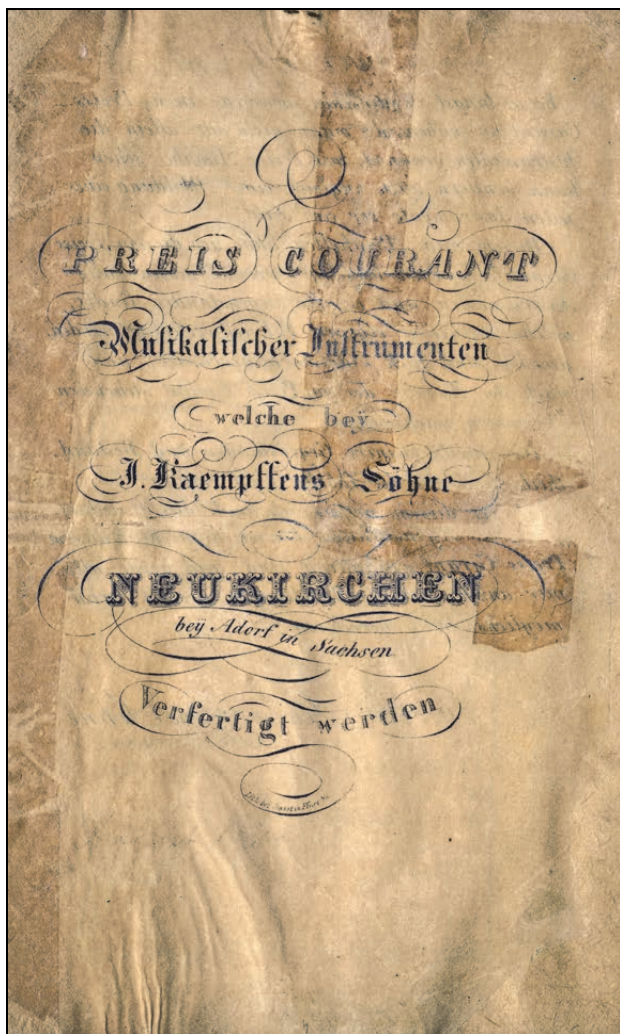 PREIS COURANT
Musikalischer Instrumenten
welche beÿ
J. Kaempffens Söhne
NEUKIRCHEN
beÿ Adorf in Sachsen
Verfertigt werden